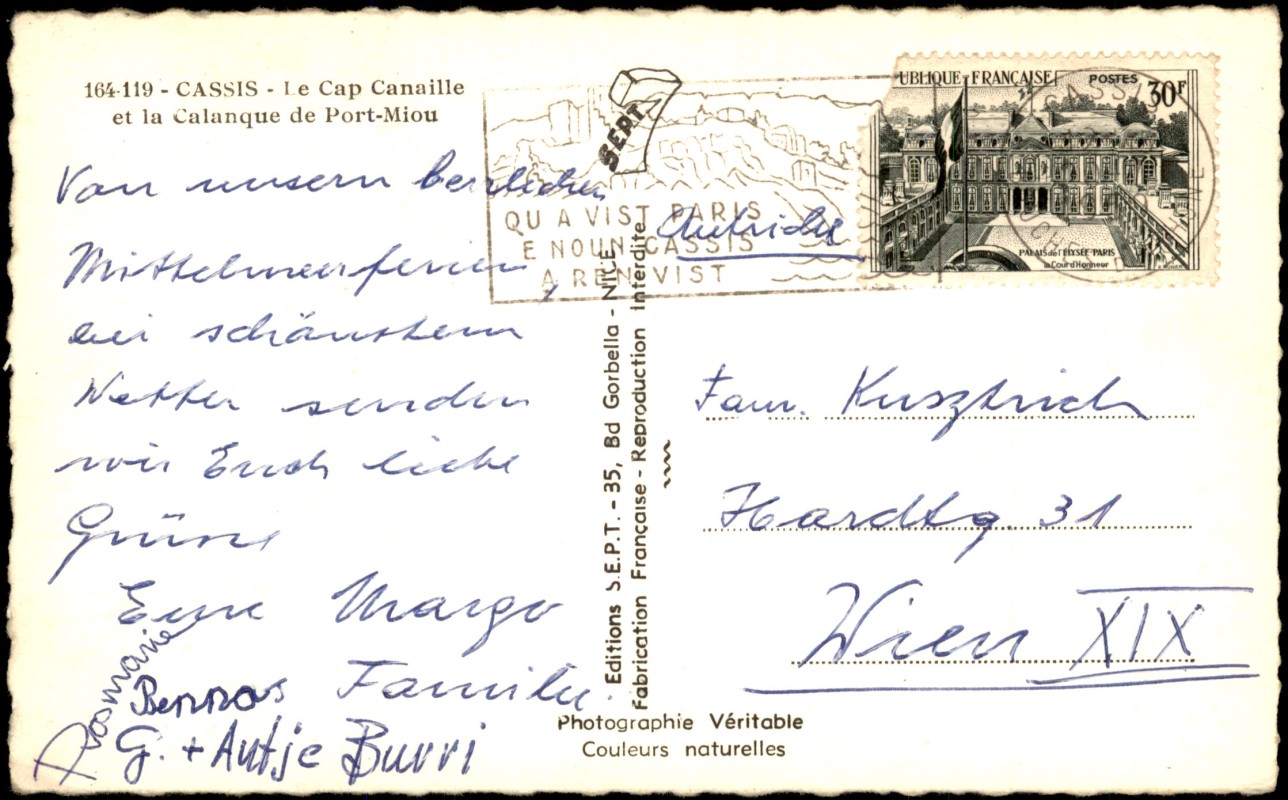 164-119 - CASSIS - Le Cap Canaille
et la Calanque de Port-Miou
Von unsern herrlichen
Mittelmeerferien,
bei schönstem
Wetter senden
wir Euch liebe
Grüsse
Eure Margo
Familie.
Rosmarie
G. + Antje Burri
SEPT
QU A VIST PARIS
E NOUN CASSIS
A REN VIST
UBLIQUE FRANÇAISE
POSTES
30F
PALAIS de l'ELYSÉE PARIS
la Cour d'Honneur
CASSIS
Autriche
Editions S.E.P.T. - 35, Bd Gorbella - NICE
Fabrication Française - Reproduction Interdite
Fam. Kusztrich
Hardtg. 31
Wien XIX
Photographie Véritable
Couleurs naturelles